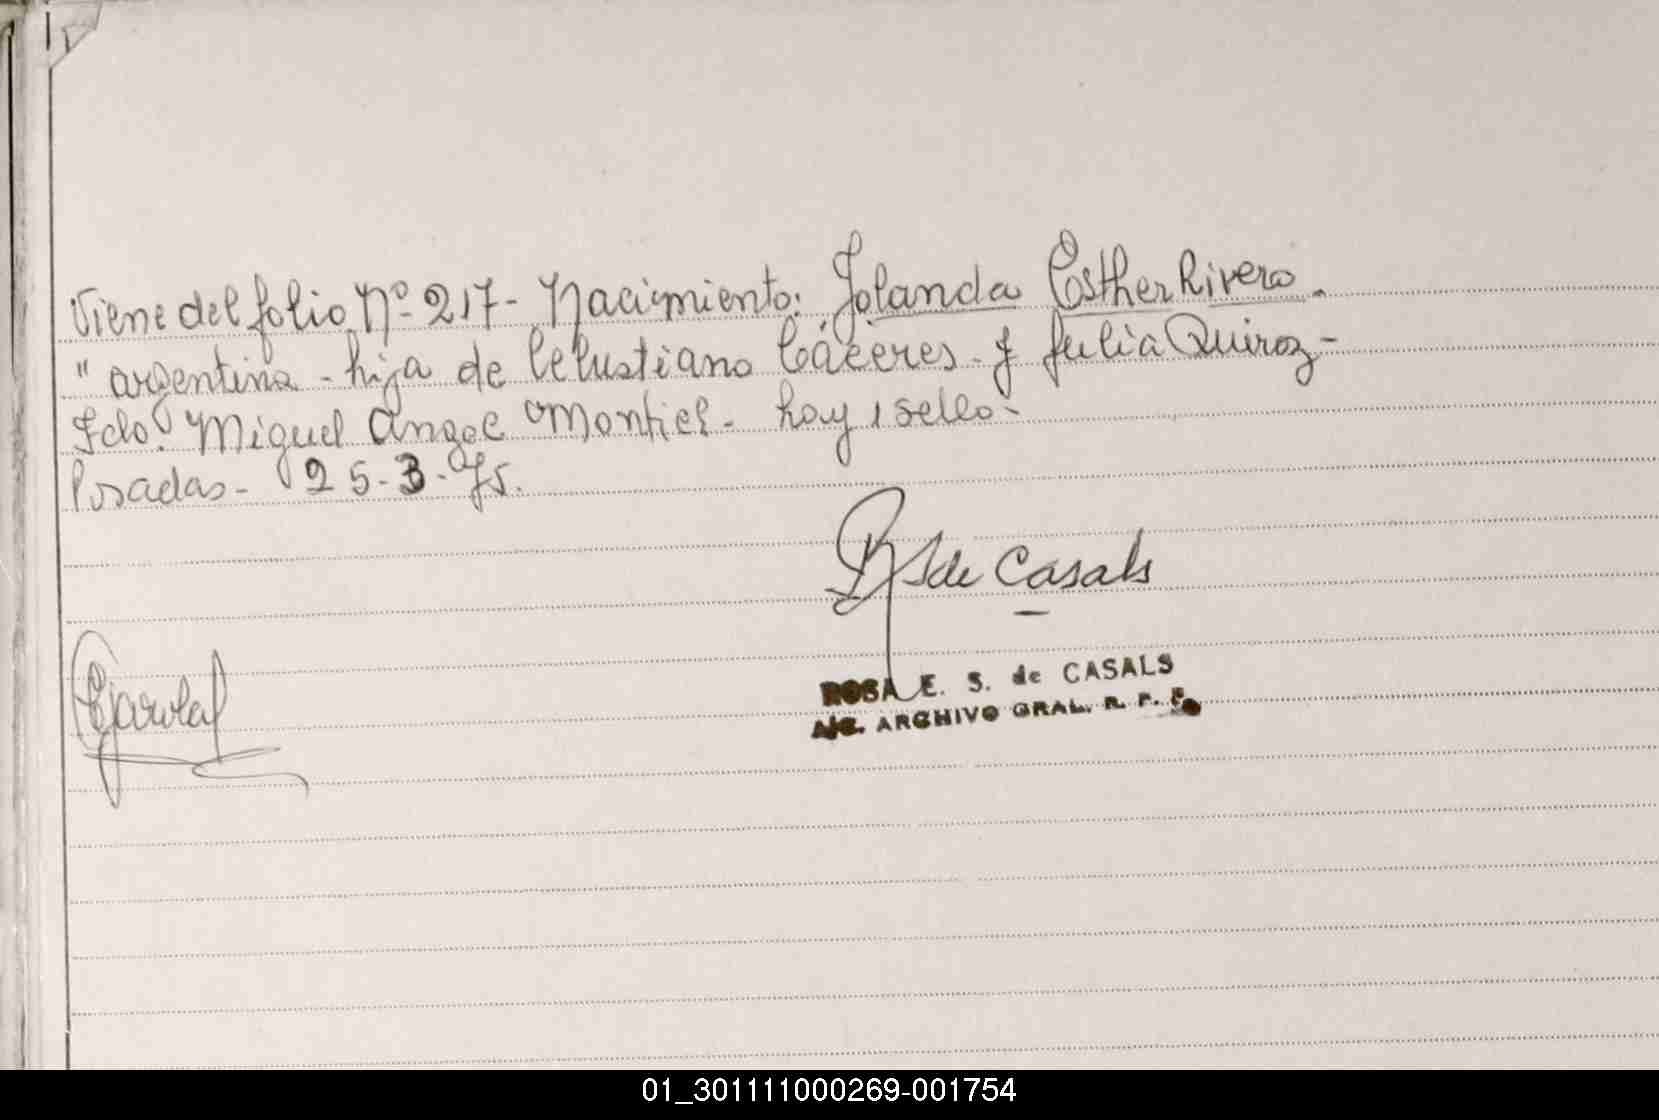 Viene del folio Nº 217 - Nacimiento: Jolanda Esther Rivero.
" argentina - hija de Celustiano Cáceres - y Julia Quiroz -
Fdo. Miguel Angel Montiel - hay 1 sello -
Posadas - 25-3-75.
RS de Casals
ROSA E. S. de CASALS
A/C. ARCHIVO GRAL. R. P. P.
01_301111000269-001754